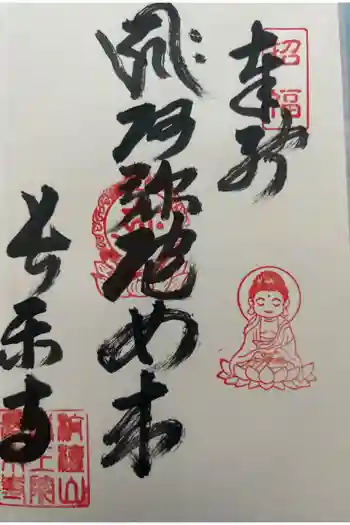 奉拝
招福
阿弥陀如来
長楽寺